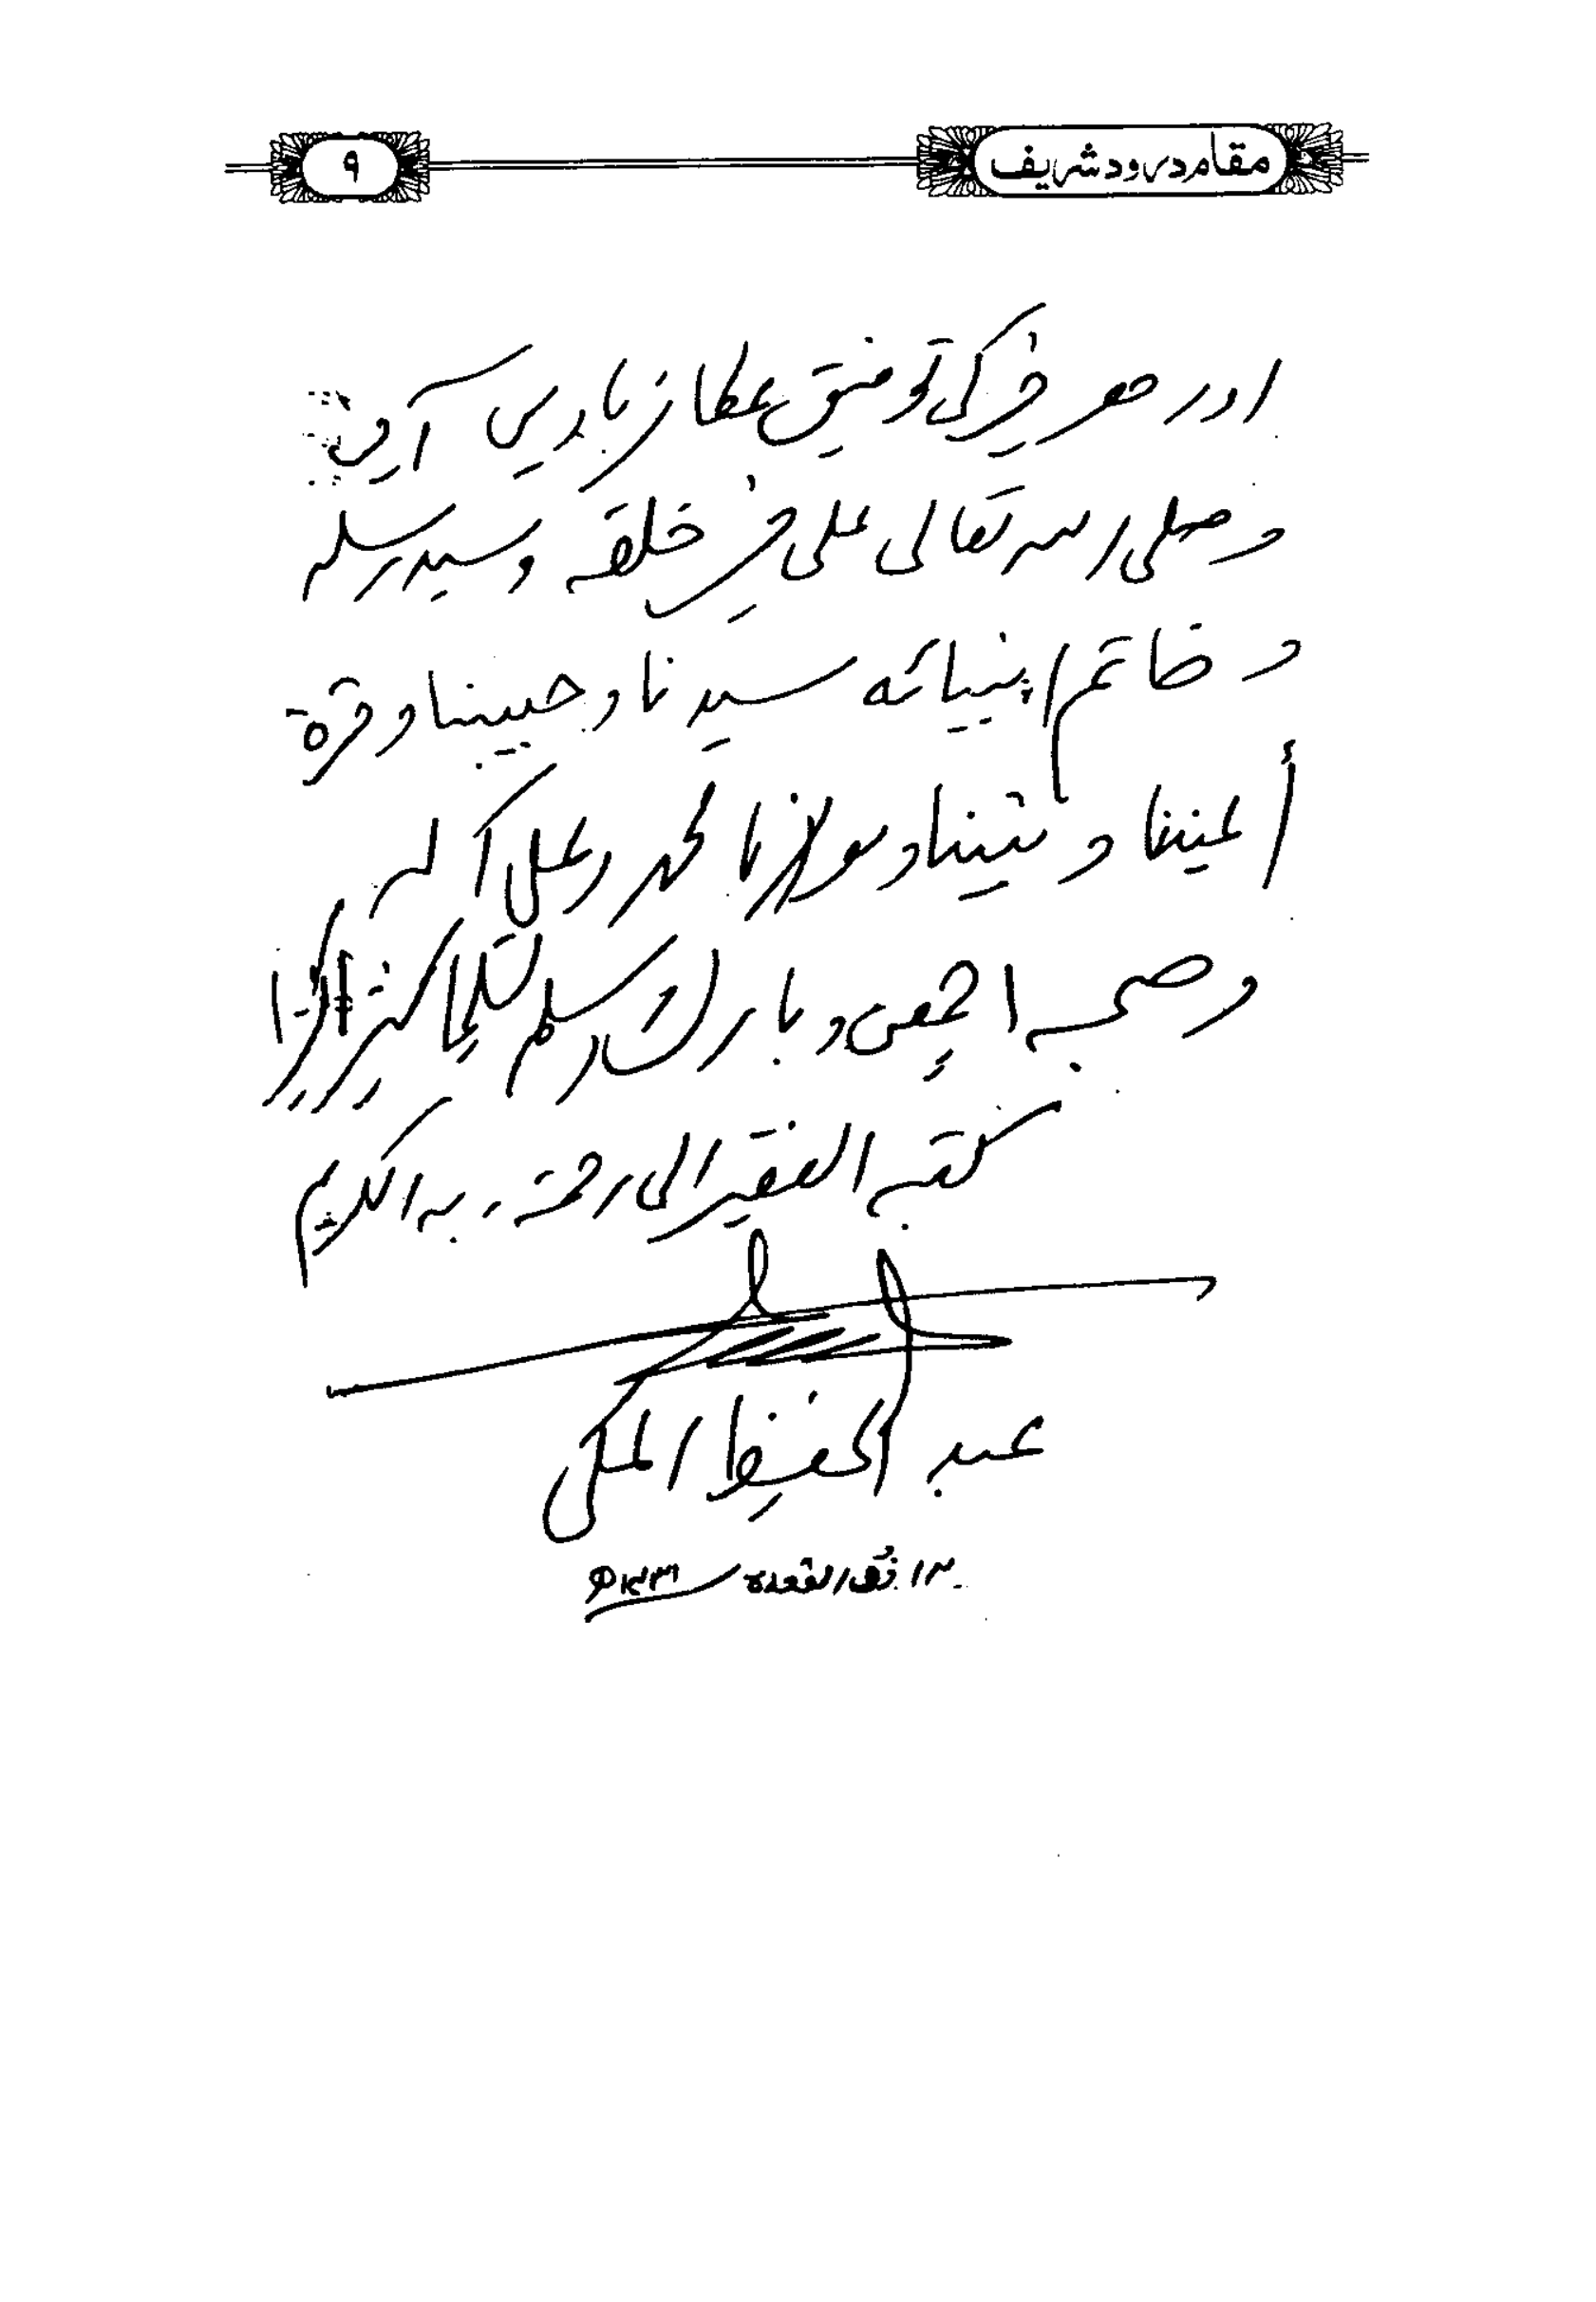 مقام درود شریف
۹
اور ھر خیر کی توفیق عطا فرمادیں آمین
وصلی اللہ تعالی علی خیر خلقہ وسید رسلہ
وخاتم انبیائہ سیدنا وحبیبنا وقرۃ
أعیننا ونبینا ومولانا محمد وعلی آلہ
وصحبہ اجمعین وبارک وسلم تسلیما کثیرا کثیرا
کتبہ الفقیر الی رحمۃ ربہ الکریم
عبد الحفیظ المکی
القعدہ